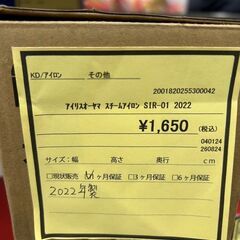 KD/アイロン その他
2001820255300042
アイリスオーヤマ スチームアイロン SIR-01 2022
¥1,650 (税込)
040124
260824
サイズ:幅 高さ 奥行 cm
□現状販売 ヶ月保証 □3ヶ月保証 □6ヶ月保証
2022年製